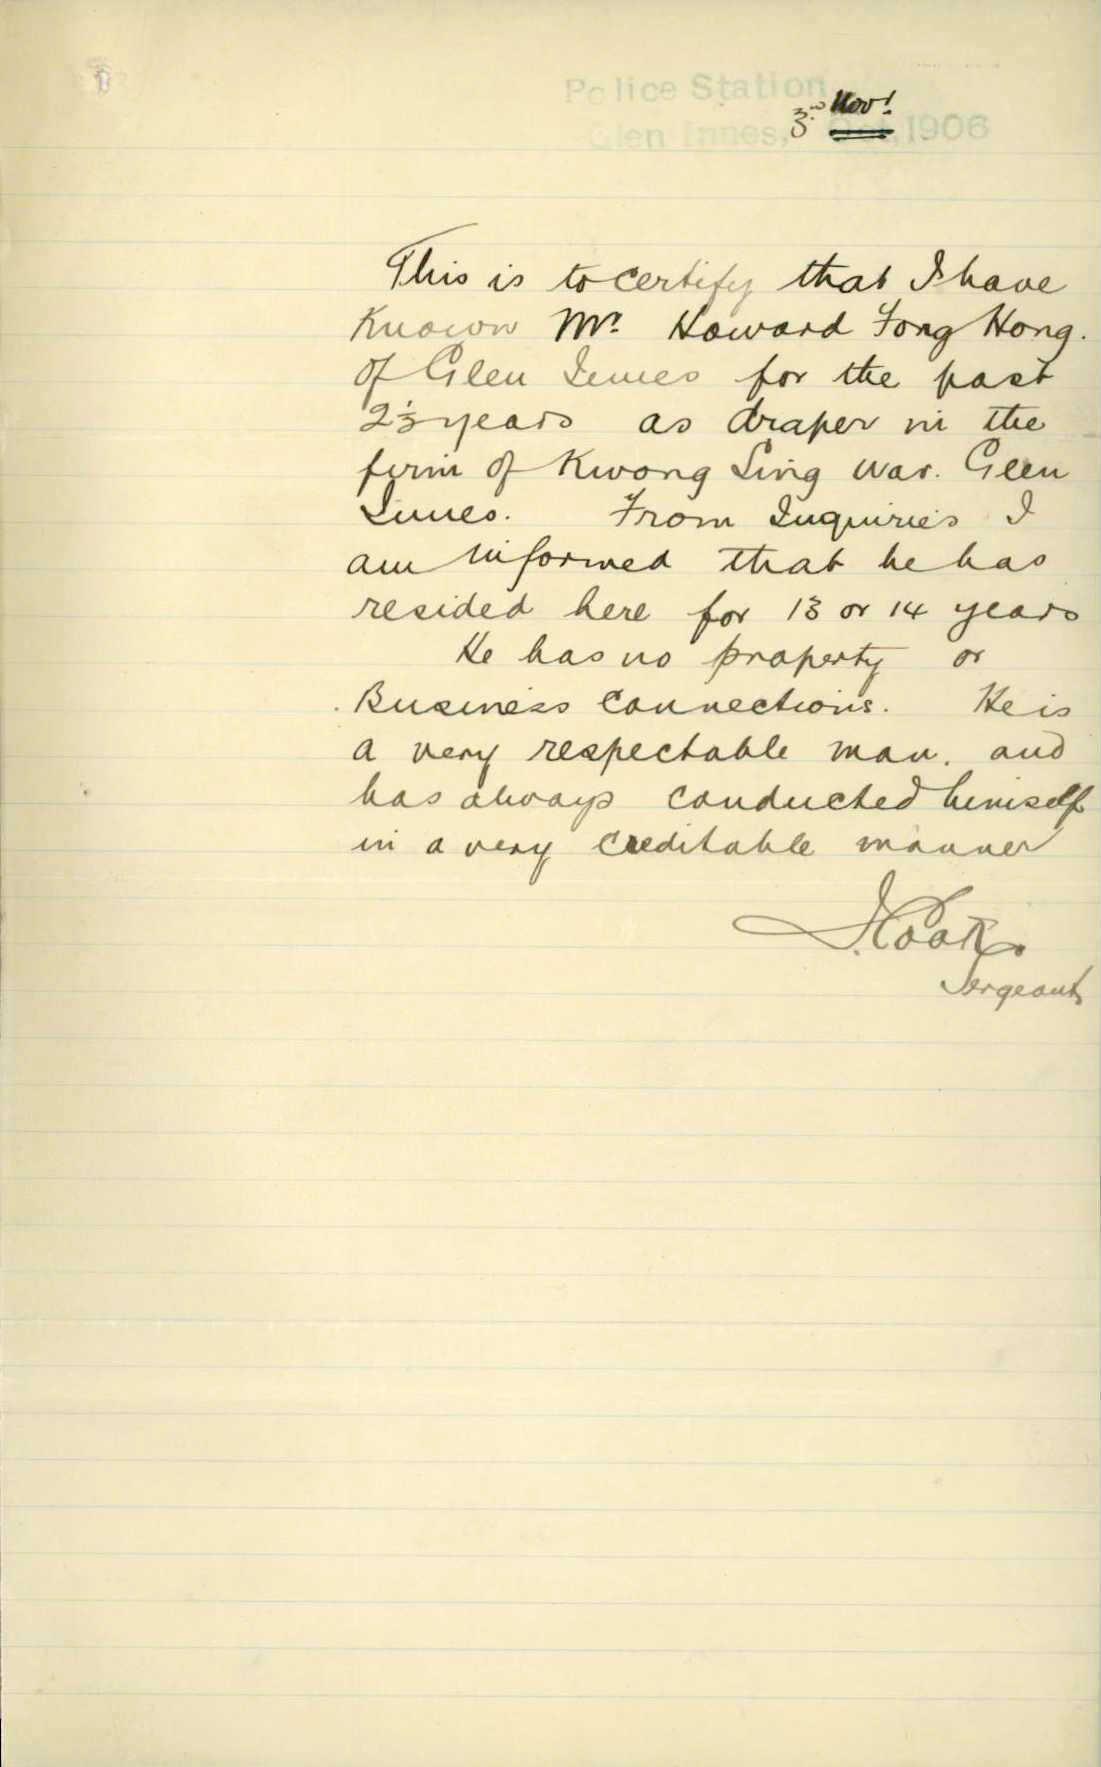 Police Station
3rd Nov!
Glen Innes, Oct, 1906
This is to certify that I have
Known Mr. Howard Fong Hong.
of Glen Innes for the past
2½ years as draper in the
firm of Kwong Sing War. Glen
Innes. From Inquiries I
am informed that he has
resided here for 13 or 14 years
He has no property or
Business connections. He is
a very respectable man. and
has always conducted himself
in a very creditable manner
J. Cook
Sergeant